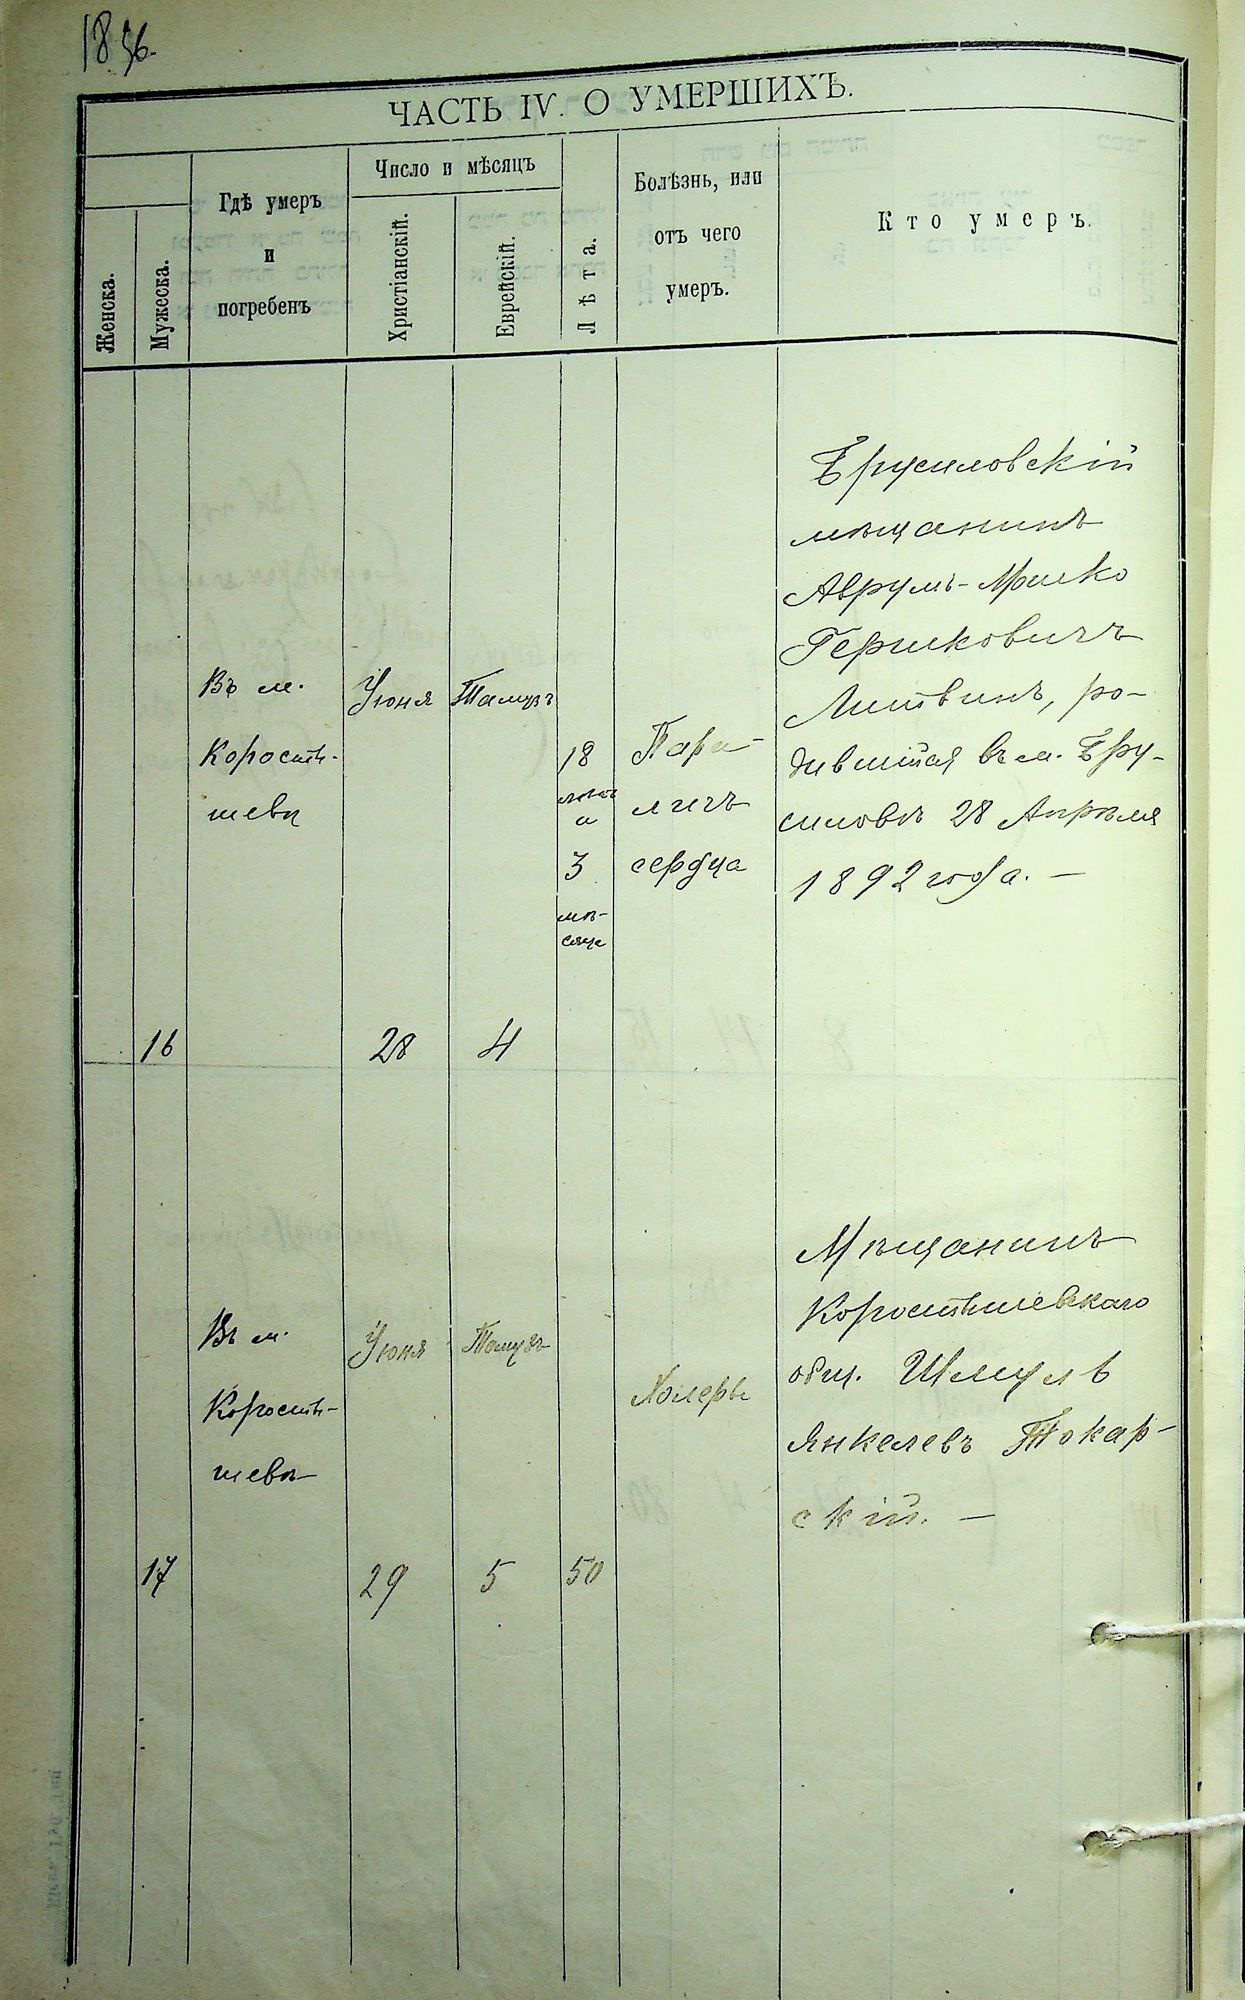 ЧАСТЬ IV. О УМЕРШИХЪ.
Женска.
Мужеска.
Гдѣ умеръ
и
погребенъ
Число и мѣсяцъ
Христіанскій.
Еврейскій.
Лѣта.
Болѣзнь, или
отъ чего
умеръ.
Кто умеръ.
16
Въ м.
Коросты-
шевѣ
Іюня
28
Тамузъ
4
18
лѣтъ
и
3
мѣ-
сяца
Пара-
личъ
сердца
Брусиловскій
мѣщанинъ
Аврумъ-Мошко
Гершковичъ
Литвинъ, ро-
дившійся въ м. Бру-
силовѣ 28 Апрѣля
1892 года. —
17
Въ м.
Коросты-
шевѣ
Іюня
29
Тамузъ
5
50
Холеры
Мѣщанинъ
Коростышевскаго
общ. Шмуль
Янкелевъ Токар-
скій. —